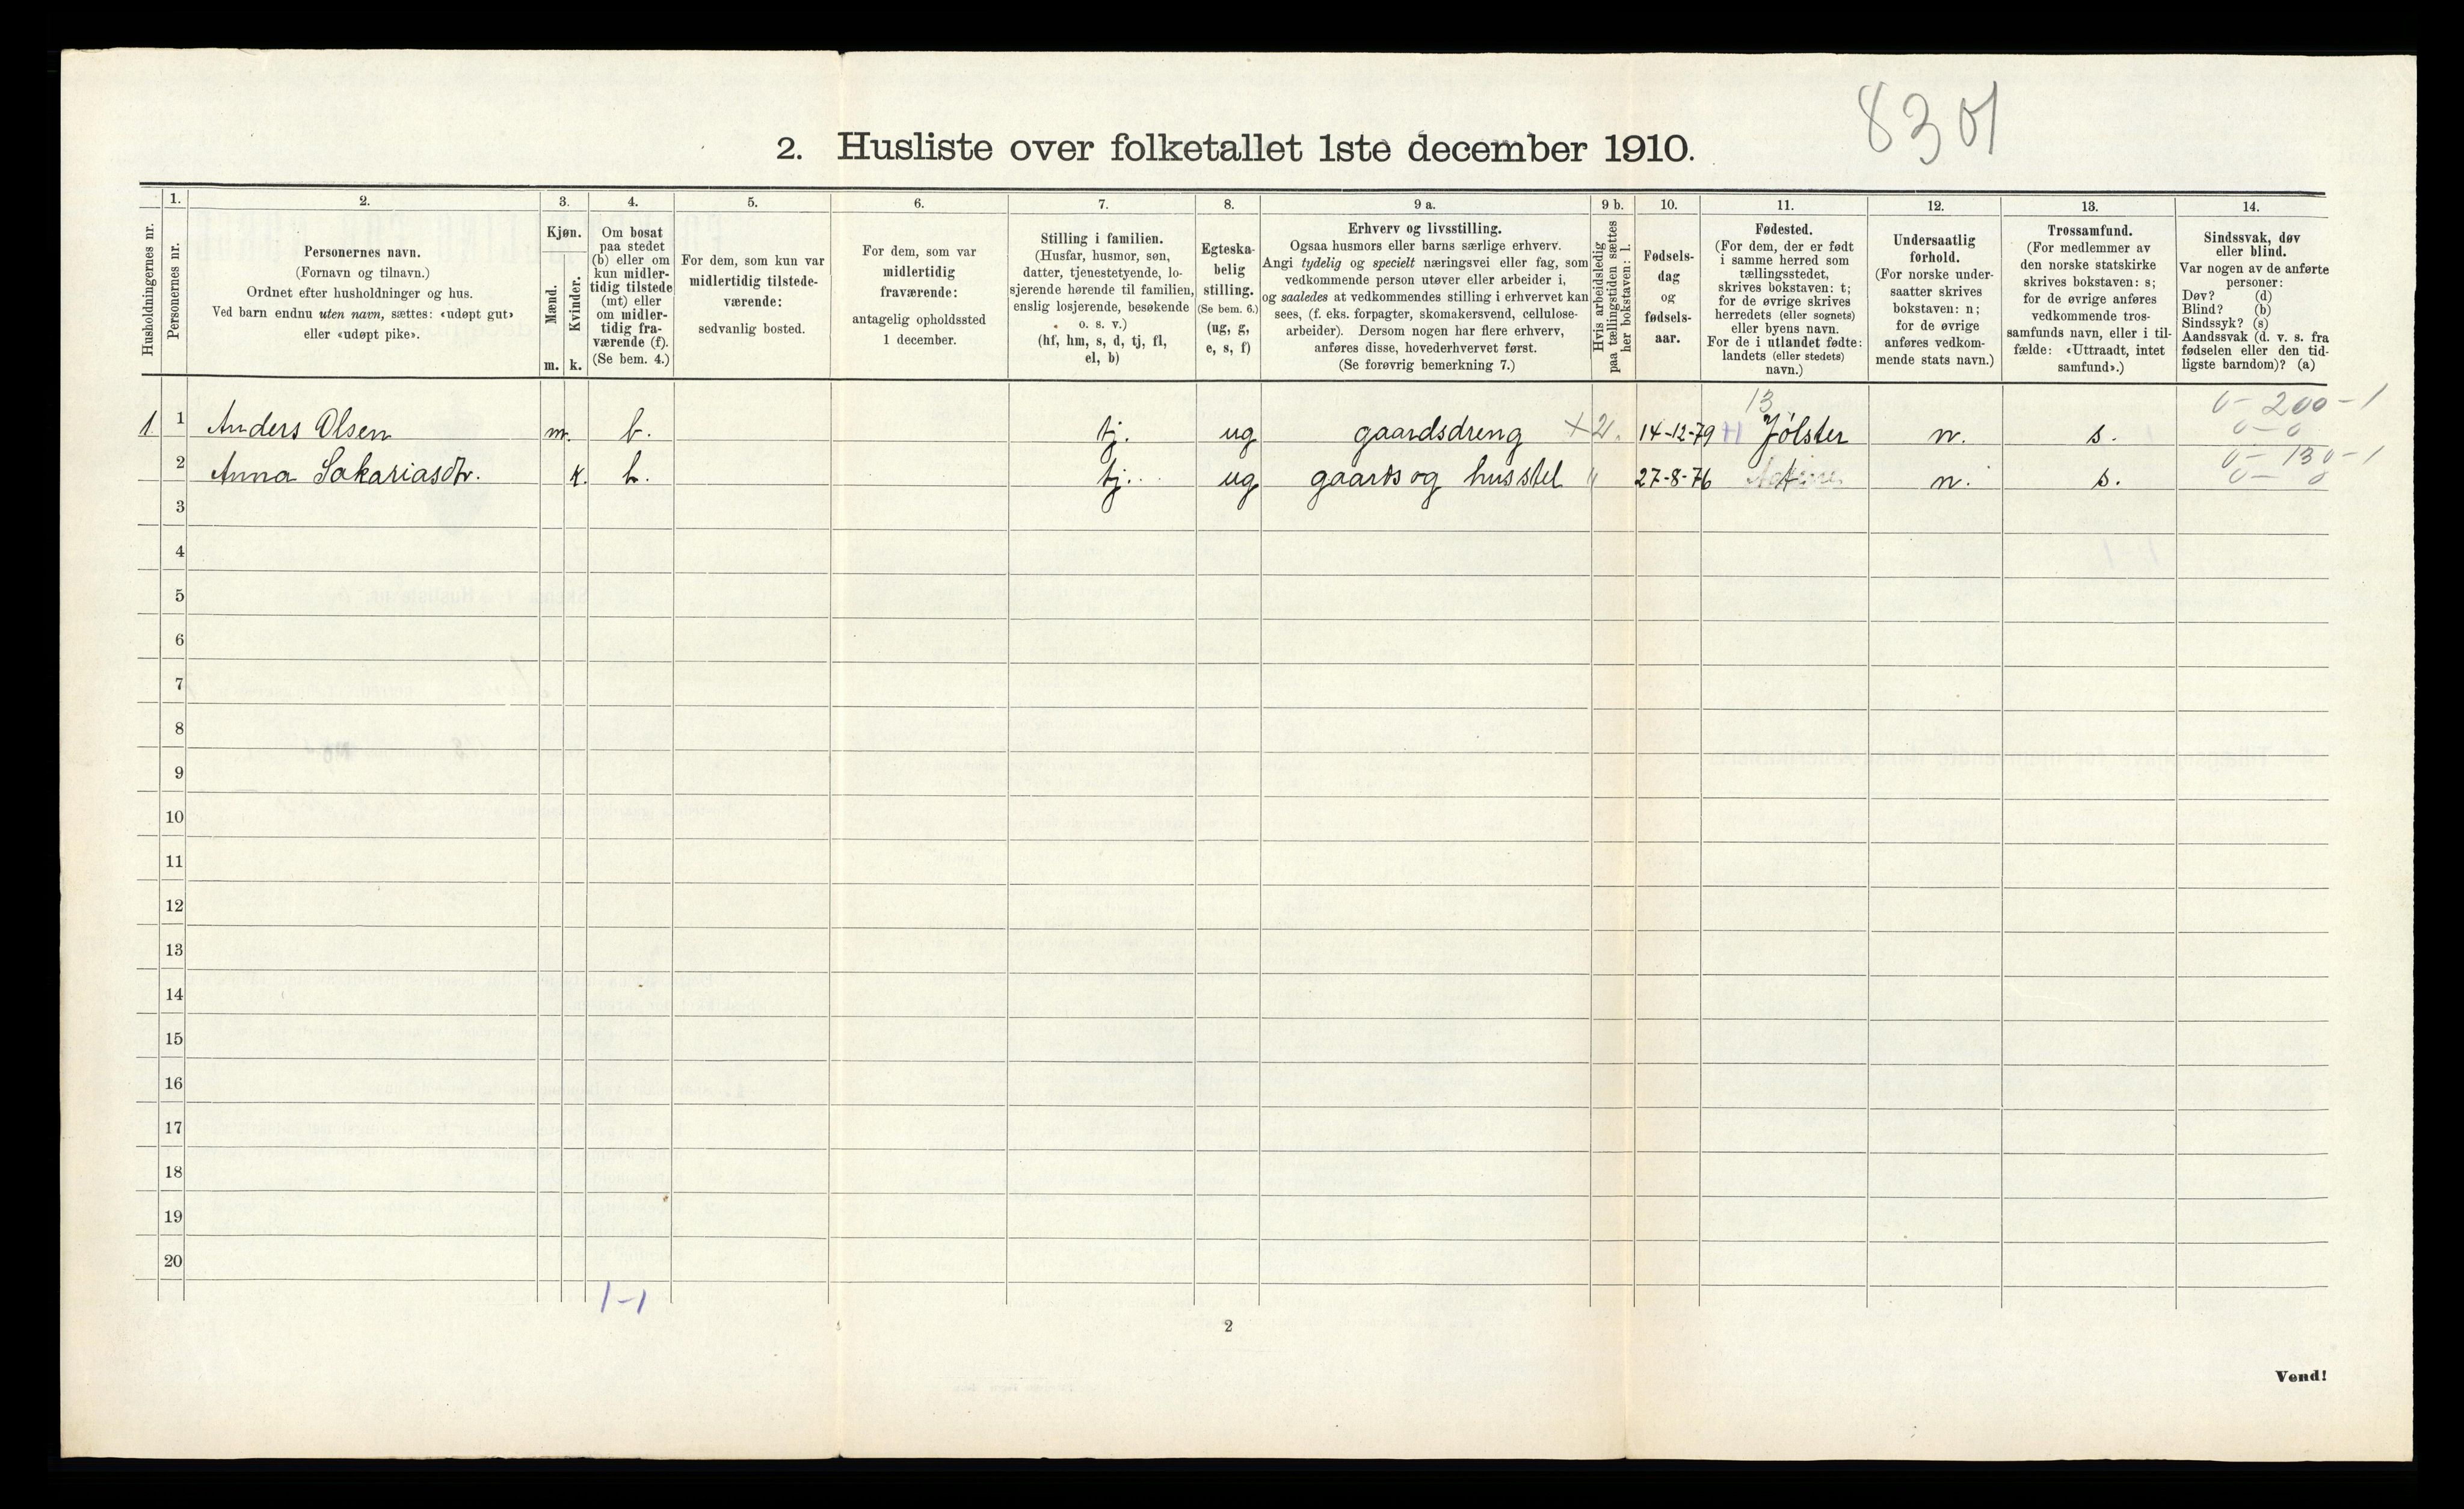 8301
2. Husliste over folketallet 1ste december 1910.
Husholdningernes nr.
1.
Personernes nr.
2.
Personernes navn.
(Fornavn og tilnavn.)
Ordnet efter husholdninger og hus.
Ved barn endnu uten navn, sættes: «udøpt gut»
eller «udøpt pike».
3.
Kjøn.
Mænd.
Kvinder.
m. k.
4.
Om bosat
paa stedet
(b) eller om
kun midler-
tidig tilstede
(mt) eller
om midler-
tidig fra-
værende (f).
(Se bem. 4.)
5.
For dem, som kun var
midlertidig tilstede-
værende:
sedvanlig bosted.
6.
For dem, som var
midlertidig
fraværende:
antagelig opholdssted
1 december.
7.
Stilling i familien.
(Husfar, husmor, søn,
datter, tjenestetyende, lo-
sjerende hørende til familien,
enslig losjerende, besøkende
o. s. v.)
(hf, hm, s, d, tj, fl,
el, b)
8.
Egteska-
belig
stilling.
(Se bem. 6.)
(ug, g,
e, s, f)
9 a.
Erhverv og livsstilling.
Ogsaa husmors eller barns særlige erhverv.
Angi tydelig og specielt næringsvei eller fag, som
vedkommende person utøver eller arbeider i,
og saaledes at vedkommendes stilling i erhvervet kan
sees, (f. eks. forpagter, skomakersvend, cellulose-
arbeider). Dersom nogen har flere erhverv,
anføres disse, hovederhvervet først.
(Se forøvrig bemerkning 7.)
9 b.
Hvis arbeidsledig
paa tællingstiden sættes
her bokstaven: l.
10.
Fødsels-
dag
og
fødsels-
aar.
11.
Fødested.
(For dem, der er født
i samme herred som
tællingsstedet,
skrives bokstaven: t;
for de øvrige skrives
herredets (eller sognets)
eller byens navn.
For de i utlandet fødte:
landets (eller stedets)
navn.)
12.
Undersaatlig
forhold.
(For norske under-
saatter skrives
bokstaven: n;
for de øvrige
anføres vedkom-
mende stats navn.)
13.
Trossamfund.
(For medlemmer av
den norske statskirke
skrives bokstaven: s;
for de øvrige anføres
vedkommende tros-
samfunds navn, eller i til-
fælde: «Uttraadt, intet
samfund».)
14.
Sindssvak, døv
eller blind.
Var nogen av de anførte
personer:
Døv? (d)
Blind? (b)
Sindssyk? (s)
Aandssvak (d. v. s. fra
fødselen eller den tid-
ligste barndom)? (a)
13 0-200-1
1 1 Anders Olsen m. b. tj. ug gaardsdreng +2. 14-12-79 Jølster n. s. 0-0
0-130-1
2 Anna Sakariasdtr. k. b. tj. ug gaards og husstel " 27-8-76 n. s. 0-0
3
4
5
6
7
8
9
10
11
12
13
14
15
16
17
18
19
20
1-1
2
Vend!